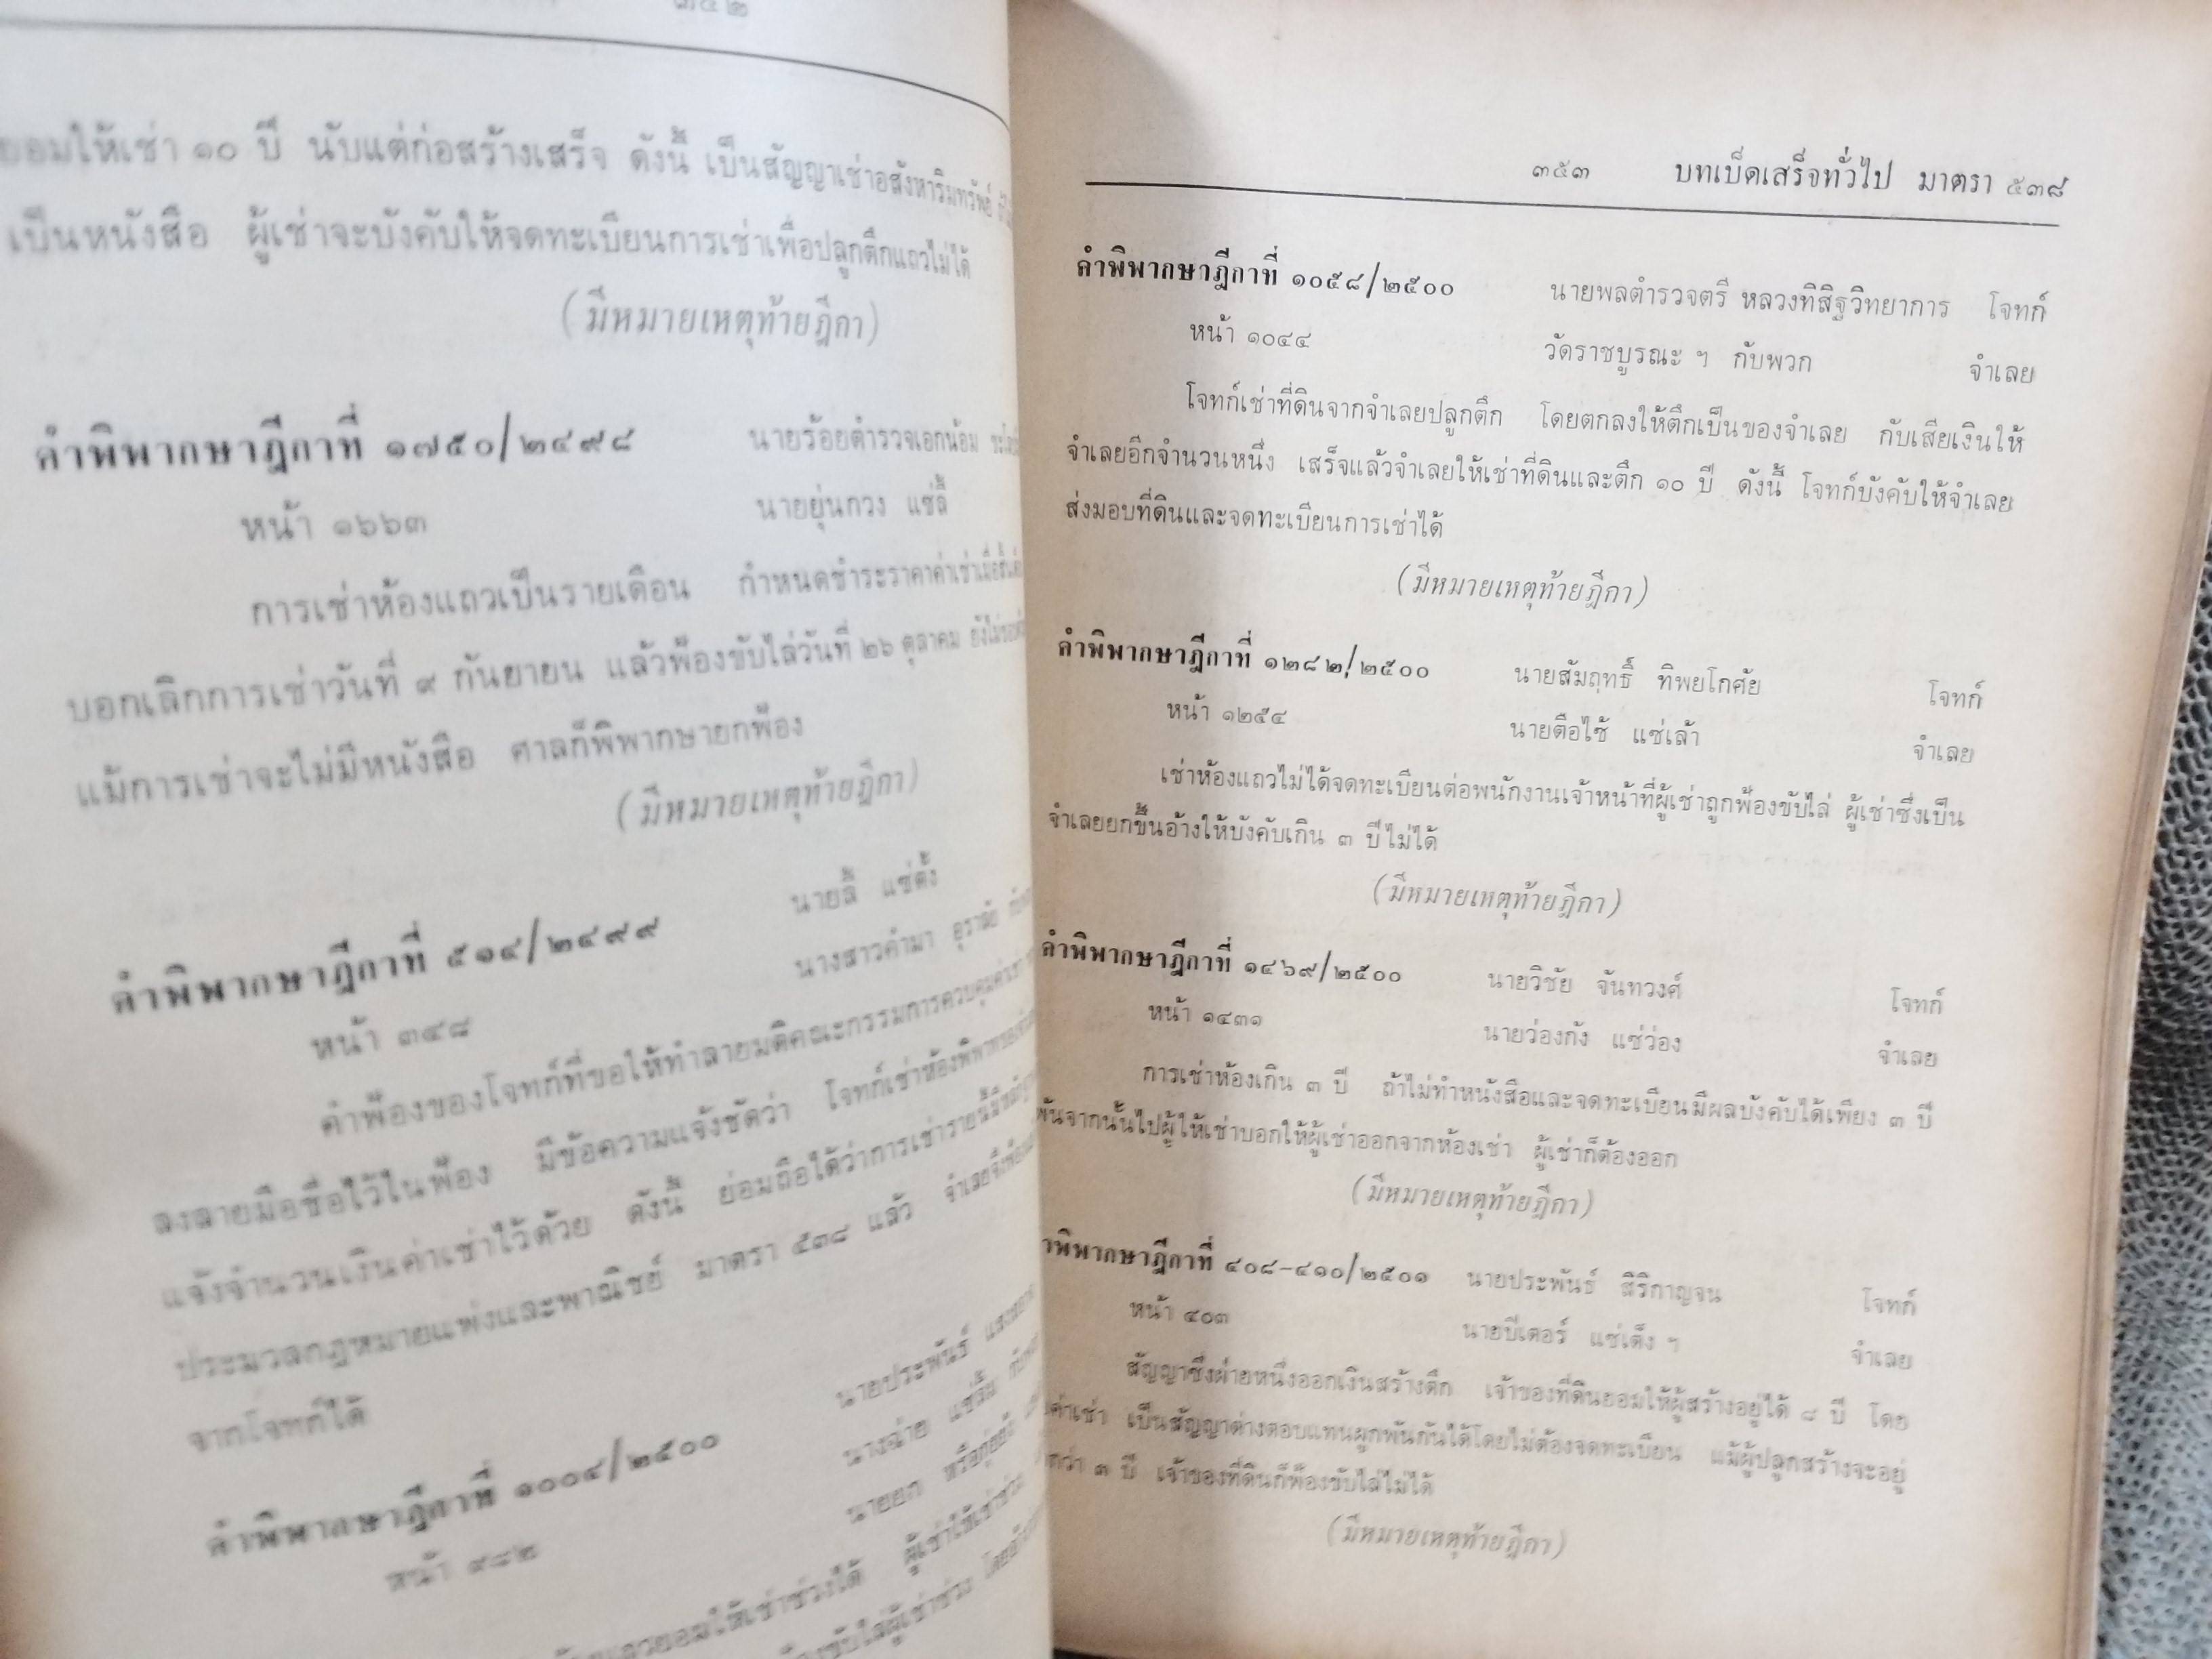 ๓๕๒
ยอมให้เช่า ๑๐ ปี นับแต่ก่อสร้างเสร็จ ดังนี้ เป็นสัญญาเช่าอสังหาริมทรัพย์
เป็นหนังสือ ผู้เช่าจะบังคับให้จดทะเบียนการเช่าเพื่อปลูกตึกแถวไม่ได้
(มีหมายเหตุท้ายฎีกา)
คำพิพากษาฎีกาที่ ๑๗๕๐/๒๔๙๘ นายร้อยตำรวจเอกน้อม
หน้า ๑๖๖๓ นายยุ่นกวง แซ่ลี้
การเช่าห้องแถวเป็นรายเดือน กำหนดชำระราคาค่าเช่าเมื่อ
บอกเลิกการเช่าวันที่ ๙ กันยายน แล้วฟ้องขับไล่วันที่ ๒๖ ตุลาคม
แม้การเช่าจะไม่มีหนังสือ ศาลก็พิพากษายกฟ้อง
(มีหมายเหตุท้ายฎีกา)
คำพิพากษาฎีกาที่ ๕๑๔/๒๔๙๙ นายลี้ แซ่ตั้ง
หน้า ๓๔๘ นางสาวคำมา
คำฟ้องของโจทก์ที่ขอให้ทำลายมติคณะกรรมการควบคุมค่าเช่า
ลงลายมือชื่อไว้ในฟ้อง มีข้อความแจ้งชัดว่า โจทก์เช่าห้องพิพาท
แจ้งจำนวนเงินค่าเช่าไว้ด้วย ดังนี้ ย่อมถือได้ว่าการเช่ารายนี้มี
ประมวลกฎหมายแพ่งและพาณิชย์ มาตรา ๕๓๘ แล้ว จำเลยจึง
จากโจทก์ได้
คำพิพากษาฎีกาที่ ๑๐๐๔/๒๕๐๐ นายประพันธ์
หน้า ๙๘๒ นางฉ่าย แซ่ลิ้ม
นายยก หรือกู่ยก
ยอมให้เช่าช่วงได้ ผู้เช่าให้เช่าช่วง
ขับไล่ผู้เช่าช่วง
๓๕๓ บทเบ็ดเสร็จทั่วไป มาตรา ๕๓๘
คำพิพากษาฎีกาที่ ๑๐๕๘/๒๕๐๐ นายพลตำรวจตรี หลวงทิสิฐวิทยาการ โจทก์
หน้า ๑๐๔๔ วัดราชบูรณะ ฯ กับพวก จำเลย
โจทก์เช่าที่ดินจากจำเลยปลูกตึก โดยตกลงให้ตึกเป็นของจำเลย กับเสียเงินให้
จำเลยอีกจำนวนหนึ่ง เสร็จแล้วจำเลยให้เช่าที่ดินและตึก ๑๐ ปี ดังนี้ โจทก์บังคับให้จำเลย
ส่งมอบที่ดินและจดทะเบียนการเช่าได้
(มีหมายเหตุท้ายฎีกา)
คำพิพากษาฎีกาที่ ๑๒๘๒/๒๕๐๐ นายสัมฤทธิ์ ทิพยโกศัย โจทก์
หน้า ๑๒๕๔ นายตือไช้ แซ่เล้า จำเลย
เช่าห้องแถวไม่ได้จดทะเบียนต่อพนักงานเจ้าหน้าที่ผู้เช่าถูกฟ้องขับไล่ ผู้เช่าซึ่งเป็น
จำเลยยกขึ้นอ้างให้บังคับเกิน ๓ ปีไม่ได้
(มีหมายเหตุท้ายฎีกา)
คำพิพากษาฎีกาที่ ๑๔๖๙/๒๕๐๐ นายวิชัย จันทวงศ์ โจทก์
หน้า ๑๔๓๑ นายว่องกัง แซ่ว่อง จำเลย
การเช่าห้องเกิน ๓ ปี ถ้าไม่ทำหนังสือและจดทะเบียนมีผลบังคับได้เพียง ๓ ปี
พ้นจากนั้นไปผู้ให้เช่าบอกให้ผู้เช่าออกจากห้องเช่า ผู้เช่าก็ต้องออก
(มีหมายเหตุท้ายฎีกา)
คำพิพากษาฎีกาที่ ๔๐๘-๔๑๐/๒๕๐๑ นายประพันธ์ สิริกาญจน โจทก์
หน้า ๔๐๓ นายปีเตอร์ แซ่เต็ง ฯ จำเลย
สัญญาซึ่งฝ่ายหนึ่งออกเงินสร้างตึก เจ้าของที่ดินยอมให้ผู้สร้างอยู่ได้ ๘ ปี โดย
ค่าเช่า เป็นสัญญาต่างตอบแทนผูกพันกันได้โดยไม่ต้องจดทะเบียน แม้ผู้ปลูกสร้างจะอยู่
กว่า ๓ ปี เจ้าของที่ดินก็ฟ้องขับไล่ไม่ได้
(มีหมายเหตุท้ายฎีกา)